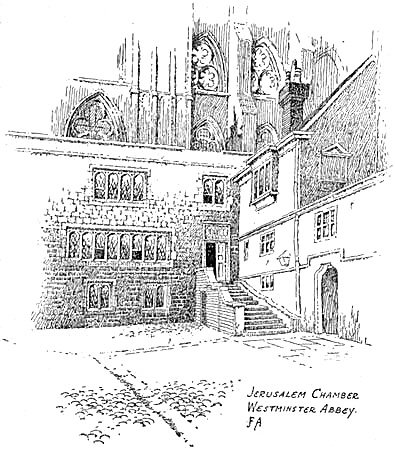 Jerusalem Chamber
Westminster Abbey.
FA